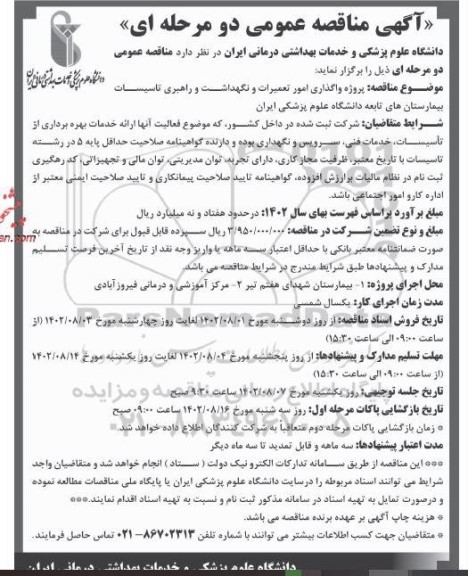 «آگهی مناقصه عمومی دو مرحله ای»
دانشگاه علوم پزشکی و خدمات بهداشتی درمانی ایران در نظر دارد مناقصه عمومی
دو مرحله ای ذیل را برگزار نماید:
موضوع مناقصه: پروژه واگذاری امور تعمیرات و نگهداشت و راهبری تاسیسات
بیمارستان های تابعه دانشگاه علوم پزشکی ایران
شرایط متقاضیان: شرکت ثبت شده در داخل کشور، که موضوع فعالیت آنها ارائه خدمات بهره برداری از
تأسیسات، خدمات فنی، سرویس و نگهداری بوده و دارنده گواهینامه صلاحیت حداقل پایه ۵ در رشته
تاسیسات با تاریخ معتبر، ظرفیت مجاز کاری، دارای تجربه، توان مدیریتی، توان مالی و تجهیزاتی، کد رهگیری
ثبت نام در نظام مالیات برارزش افزوده، گواهینامه تایید صلاحیت پیمانکاری و تایید صلاحیت ایمنی معتبر از
اداره کارو امور اجتماعی باشد.
مبلغ برآورد براساس فهرست بهای سال ۱۴۰۲: درحدود هفتاد و نه میلیارد ریال
مبلغ و نوع تضمین شرکت در مناقصه: ۳/۹۵۰/۰۰۰/۰۰۰ ریال سپرده قابل قبول برای شرکت در مناقصه به
صورت ضمانتنامه معتبر بانکی با حداقل اعتبار سه ماهه یا واریز وجه نقد از تاریخ آخرین فرصت تسلیم
مدارک و پیشنهادها طبق شرایط مندرج در شرایط مناقصه می باشد.
محل اجرای پروژه: ۱- بیمارستان شهدای هفتم تیر ۲- مرکز آموزشی و درمانی فیروزآبادی
مدت زمان اجرای کار: یکسال شمسی
تاریخ فروش اسناد مناقصه: از روز دوشنبه مورخ ۱۴۰۲/۰۸/۰۱ لغایت روز چهارشنبه مورخ ۱۴۰۲/۰۸/۰۳ (از
ساعت ۰۹:۰۰ الی ساعت ۱۵:۳۰)
مهلت تسلیم مدارک و پیشنهادها: از روز پنجشنبه مورخ ۱۴۰۲/۰۸/۰۴ لغایت روز یکشنبه مورخ ۱۴۰۲/۰۸/۱۴
(از ساعت ۰۹:۰۰ الی ساعت ۱۵:۳۰)
تاریخ جلسه توجیهی: روز یکشنبه مورخ ۱۴۰۲/۰۸/۰۷ ساعت ۹:۳۰ صبح
تاریخ بازگشایی پاکات مرحله اول: روز سه شنبه مورخ ۱۴۰۲/۰۸/۱۶ ساعت ۰۹:۰۰ صبح
* زمان بازگشایی پاکات مرحله دوم متعاقباً به شرکت کنندگان اطلاع داده خواهد شد.
مدت اعتبار پیشنهادها: سه ماهه و قابل تمدید تا سه ماه دیگر
*** این مناقصه از طریق سامانه تدارکات الکترونیک دولت ( ستاد ) انجام خواهد شد و متقاضیان واجد
شرایط می توانند اسناد مربوطه را درسایت دانشگاه علوم پزشکی ایران یا پایگاه ملی مناقصات مطالعه نموده
و درصورت تمایل به تهیه اسناد در سامانه مذکور ثبت نام و نسبت به تهیه اسناد اقدام نمایند.***
* هزینه چاپ آگهی بر عهده برنده مناقصه می باشد.
* متقاضیان جهت کسب اطلاعات بیشتر می توانند با شماره تلفن ۸۶۷۰۲۳۱۳-۰۲۱ تماس حاصل فرمایند.
دانشگاه علوم پزشکی و خدمات بهداشتی درمانی ایران